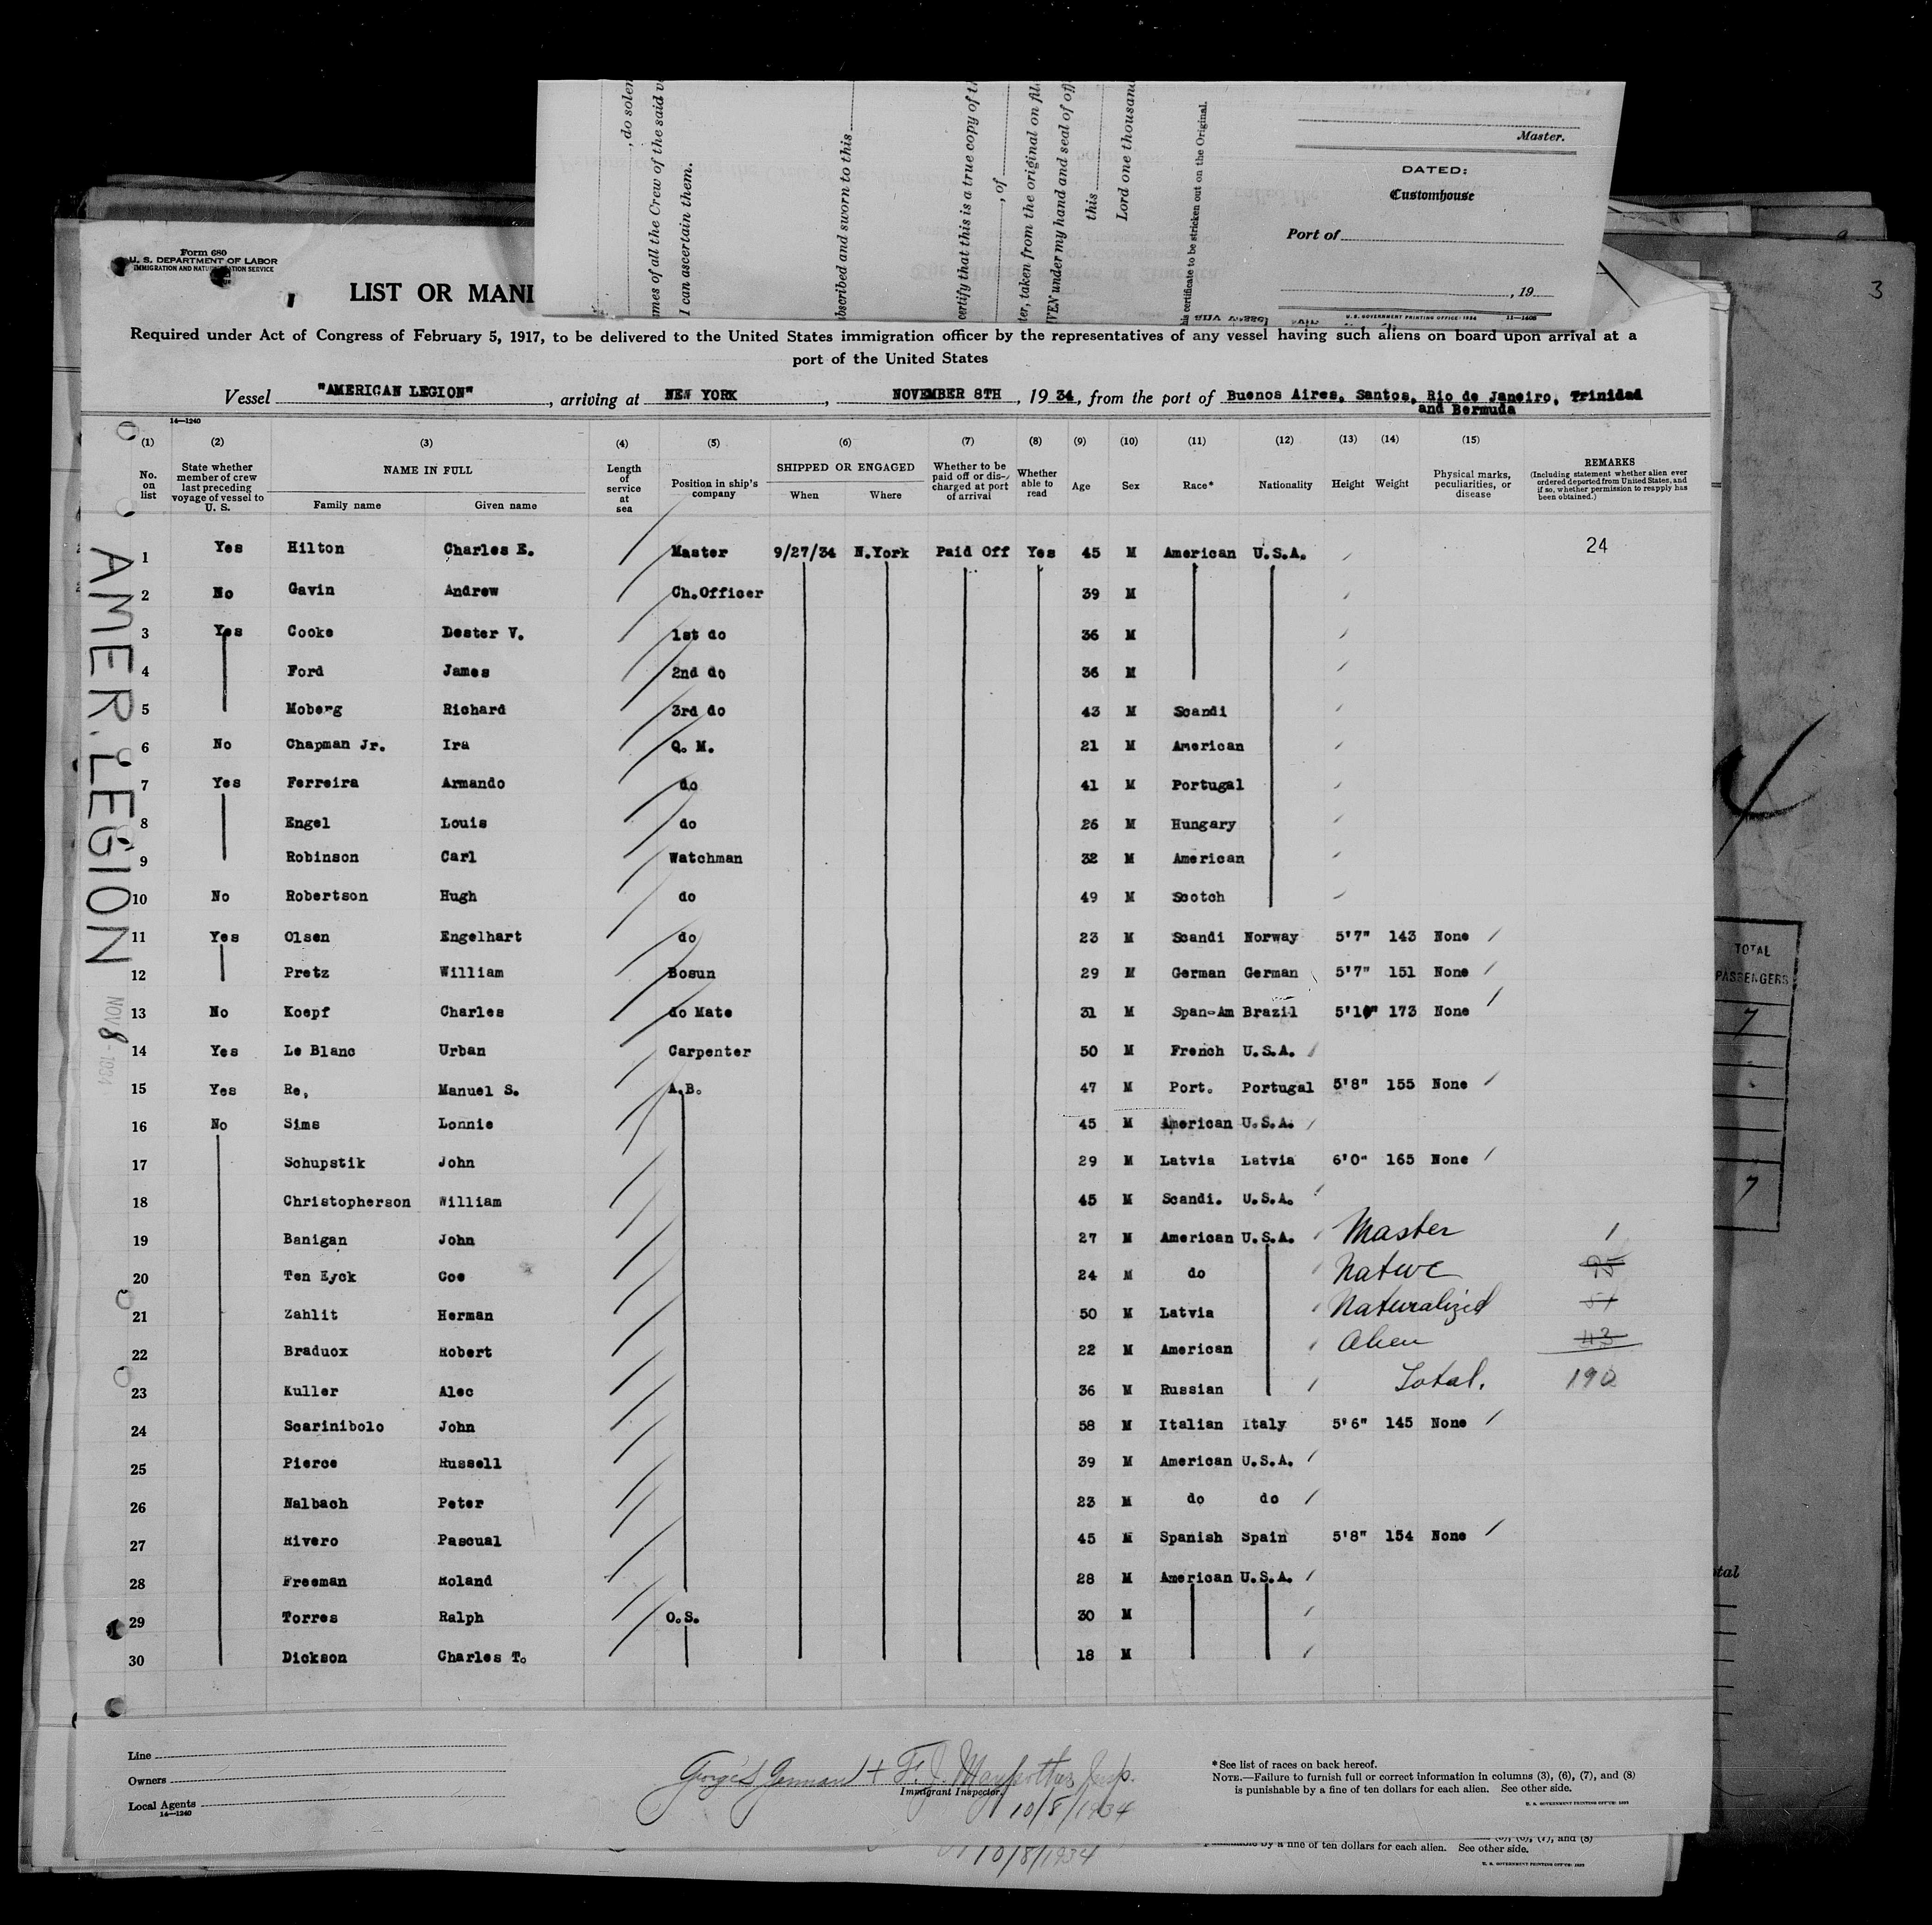 , do solem
mes of all the Crew of the said v
I can ascertain them.
bscribed and sworn to this
certify that this is a true copy of th
, of
ter, taken from the original on fil
VEN under my hand and seal of off
this
Lord one thousand
his certificate to be stricken out on the Original.
Master.
DATED:
Customhouse
Port of
, 19
U. S. GOVERNMENT PRINTING OFFICE: 1934 11—1408
3
Form 680
U. S. DEPARTMENT OF LABOR
IMMIGRATION AND NATURALIZATION SERVICE
LIST OR MANI
Required under Act of Congress of February 5, 1917, to be delivered to the United States immigration officer by the representatives of any vessel having such aliens on board upon arrival at a
port of the United States
Vessel "AMERICAN LEGION", arriving at NEW YORK, NOVEMBER 8TH, 19 34, from the port of Buenos Aires, Santos, Rio de Janeiro, Trinidad
and Bermuda
14—1240
(1) (2) (3) (4) (5) (6) (7) (8) (9) (10) (11) (12) (13) (14) (15)
No. on list State whether member of crew last preceding voyage of vessel to U. S. NAME IN FULL Family name Given name Length of service at sea Position in ship's company SHIPPED OR ENGAGED When Where Whether to be paid off or discharged at port of arrival Whether able to read Age Sex Race* Nationality Height Weight Physical marks, peculiarities, or disease REMARKS (Including statement whether alien ever ordered deported from United States, and if so, whether permission to reapply has been obtained.)
1 Yes Hilton Charles E. Master 9/27/34 N.York Paid Off Yes 45 M American U.S.A. 24
2 No Gavin Andrew Ch.Officer 39 M
3 Yes Cooke Dester V. 1st do 36 M
4 Ford James 2nd do 36 M
5 Moberg Richard 3rd do 43 M Scandi
6 No Chapman Jr. Ira Q. M. 21 M American
7 Yes Ferreira Armando do 41 M Portugal
8 Engel Louis do 26 M Hungary
9 Robinson Carl Watchman 32 M American
10 No Robertson Hugh do 49 M Scotch
11 Yes Olsen Engelhart do 23 M Scandi Norway 5'7" 143 None
12 Pretz William Bosun 29 M German German 5'7" 151 None
13 No Koepf Charles do Mate 31 M Span-Am Brazil 5'10" 173 None
14 Yes Le Blanc Urban Carpenter 50 M French U.S.A.
15 Yes Re, Manuel S. A.B. 47 M Port. Portugal 5'8" 155 None
16 No Sims Lonnie 45 M American U.S.A.
17 Schupstik John 29 M Latvia Latvia 6'0" 165 None
18 Christopherson William 45 M Scandi. U.S.A.
19 Banigan John 27 M American U.S.A. Master 1
20 Ten Eyck Coe 24 M do Native 95
21 Zahlit Herman 50 M Latvia Naturalized 51
22 Braduox Robert 22 M American Alien 43
23 Kuller Alec 36 M Russian Total. 190
24 Scarinibolo John 58 M Italian Italy 5'6" 145 None
25 Pierce Russell 39 M American U.S.A.
26 Nalbach Peter 23 M do do
27 Rivero Pascual 45 M Spanish Spain 5'8" 154 None
28 Freeman Roland 28 M American U.S.A.
29 Torres Ralph O.S. 30 M
30 Dickson Charles T. 18 M
AMER. LEGION
NOV 8 - 1934
TOTAL
PASSENGERS
7
7
tal
Line
Owners
Local Agents
14—1240
Immigrant Inspector.
10/8/1934
*See list of races on back hereof.
NOTE.—Failure to furnish full or correct information in columns (3), (6), (7), and (8)
is punishable by a fine of ten dollars for each alien. See other side.
U. S. GOVERNMENT PRINTING OFFICE
(6), (7), and (8)
by a fine of ten dollars for each alien. See other side.
U. S. GOVERNMENT PRINTING OFFICE
10/8/1934